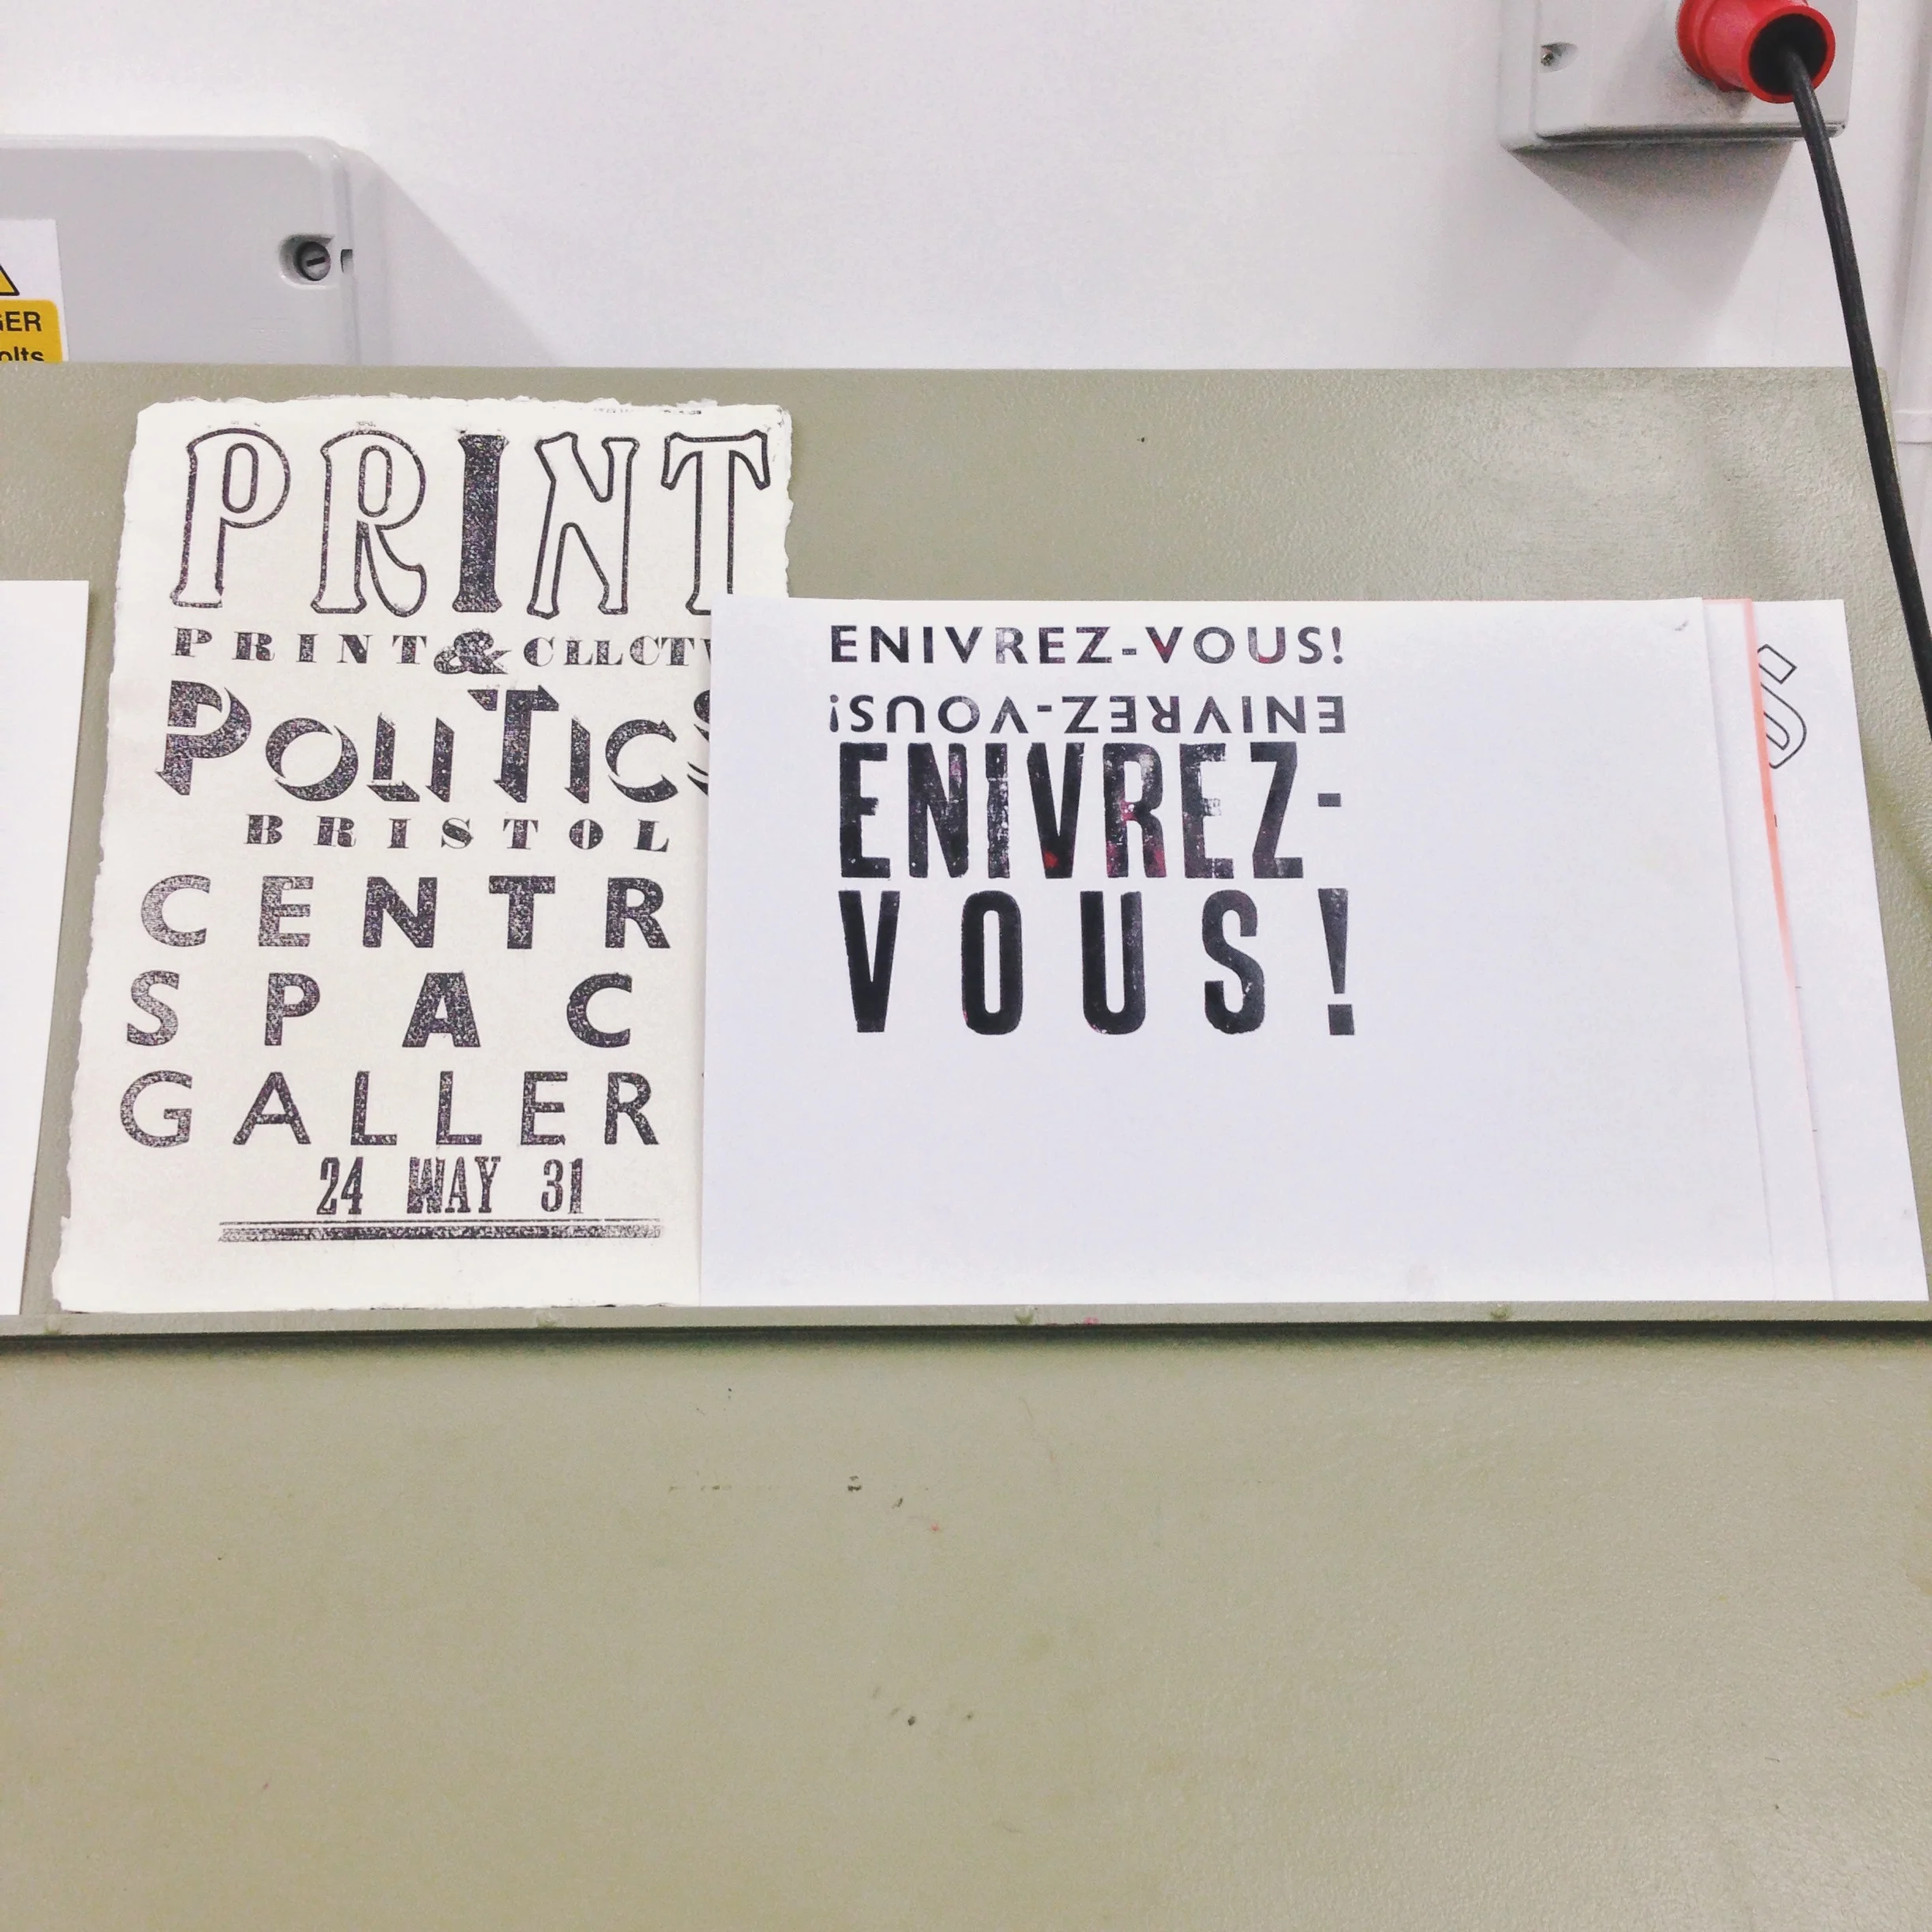 GER
olts
PRINT
PRINT & CLLCTV
POLITICS
BRISTOL
CENTR
SPAC
GALLER
24 MAY 31
ENIVREZ-VOUS!
ENIVREZ-VOUS!
ENIVREZ-
VOUS!
S